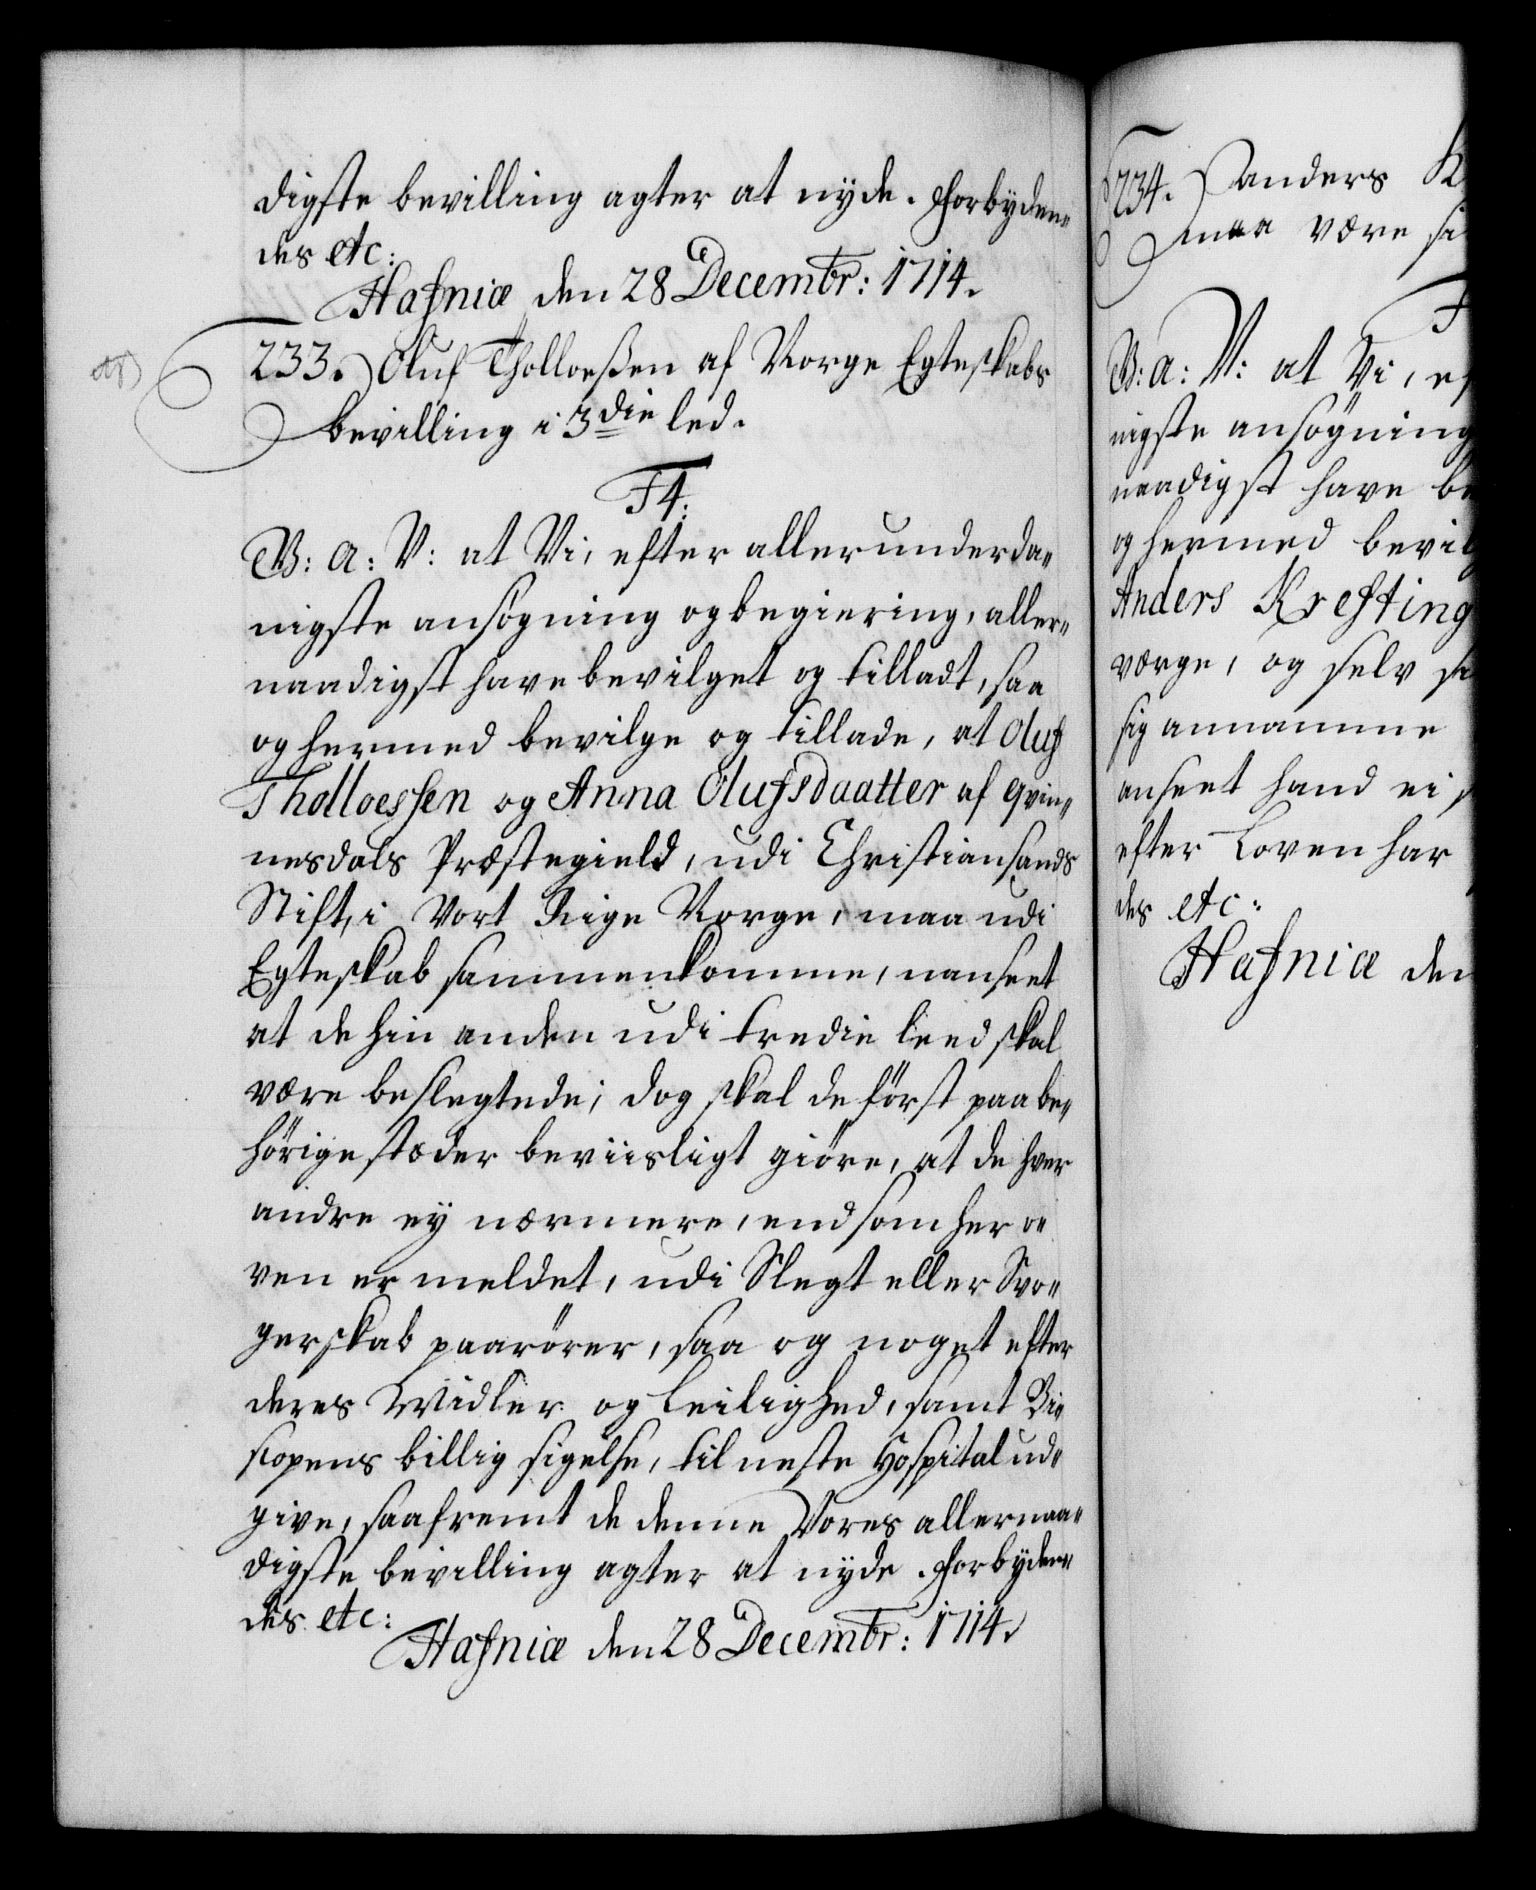 digste bevilling agter at nyde. Forbyden-
des etc:
Hafniæ den 28 Decembr: 1714.
233. Oluf Tholloeßen af Norge Egteskabs
bevilling i 3die led.
F4:
W: A: V: at Vi, efter allerunderda-
nigste ansøgning og begiering, aller-
naadigst have bevilget og tilladt, saa
og hermed bevilge og tillade, at Oluf
Tholloessen og Anna Olufsdaatter af Qvin-
nesdals Præstegield, udi Christiansands
Stift, i Vort Rige Norge, maa udi
Egteskab sammenkomme, uanseet
at de hin anden udi tredie leed skal
være beslegtede; dog skal de först paa be-
hörige stæder beviisligt giöre, at de hver
andre ey nærmere, end som her o-
ven er meldet, udi Slegt eller Svo-
gerskab paarörer, saa og noget efter
deres Midler og Leilighed, samt Bi-
scopens billig sigelse, til neste Hospital ud-
give, saafremt de denne Vores allernaa-
digste bevilling agter at nyde. Forbyden-
des etc:
Hafniæ den 28 Decembr: 1714.
234. Anders K
maa være si
F
W: A: V: at Vi, ef
nigste ansøgning
naadigst have be
og hermed bevilg
Anders Krefting
værge, og selv si
sig annamme
anseet hand ei
efter Loven har
des etc:
Hafniæ den